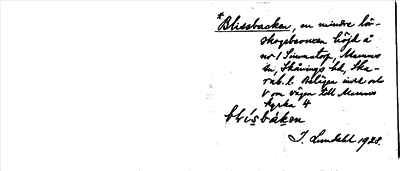 *Blissbacken, en mindre löv-
skogsbevuxen höjd å
nr 1 Simmatorp, Marums
sn, Skånings hd, Ska-
rab. l. Belägen invid och
V om vägen till Marums
kyrka 4
blisbàken
I. Lundahl 1928.